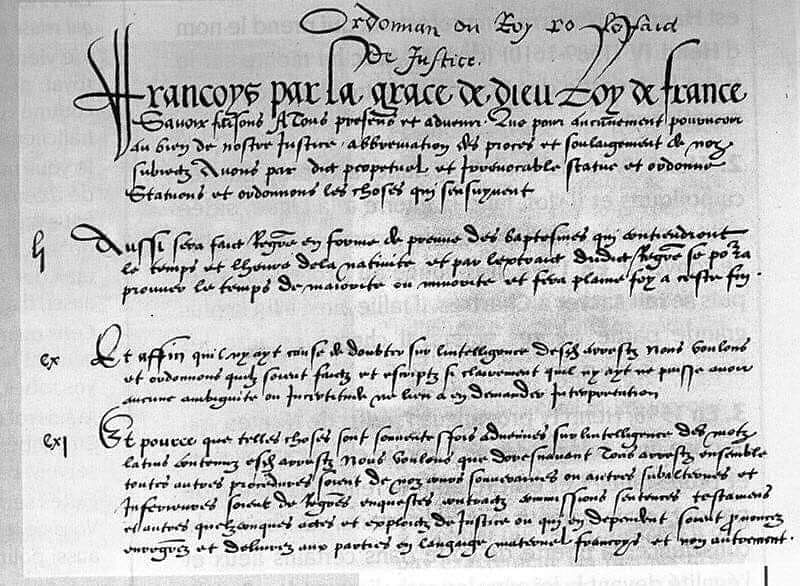 Ordonnan du Roy so le faid
De Justice.
Francoys par la grace de dieu Roy de france
Savoir faisons a Tous presens et advenir. Que pour aucunement pourveoir
au bien de nostre Justice abbreviation des proces et soulaigement de noz
subiectz Avons par edict perpetuel et Irrevocable statue et ordonne
Statuons et ordonnons les choses qui sensuyvent
Aussi sera faict Regre en forme de preuve des baptesmes qui contiendront
le temps et lheure dela nativite et par lextraict dudict Regre se pora
prouver le temps de maiorite ou minorite et fera plaine foy a ceste fin.
cx Et affin quil ny ayt cause de doubter sur lintelligence desd arrestz Nous voulons
et ordonnons quilz soient faictz et escriptz si clairement quil ny ayt ne puisse avoir
aucune ambiguite ou Incertitude ne lieu a en demander Interpretation
cxi Et pource que telles choses sont souventesfois advenues sur lintelligence des motz
latins contenuz esd arrestz Nous voulons que doresnavant Tous arrestz ensemble
toutes autres procedures soient de noz cours souveraines ou autres subalternes et
Inferieures soient de Regres enquestes contractz commissions sentences testamens
et autres quelzconques actes et exploictz de Justice ou qui en dependent soient pnoncez
enregrez et delivrez aux parties en langaige maternel francoys et non autrement.